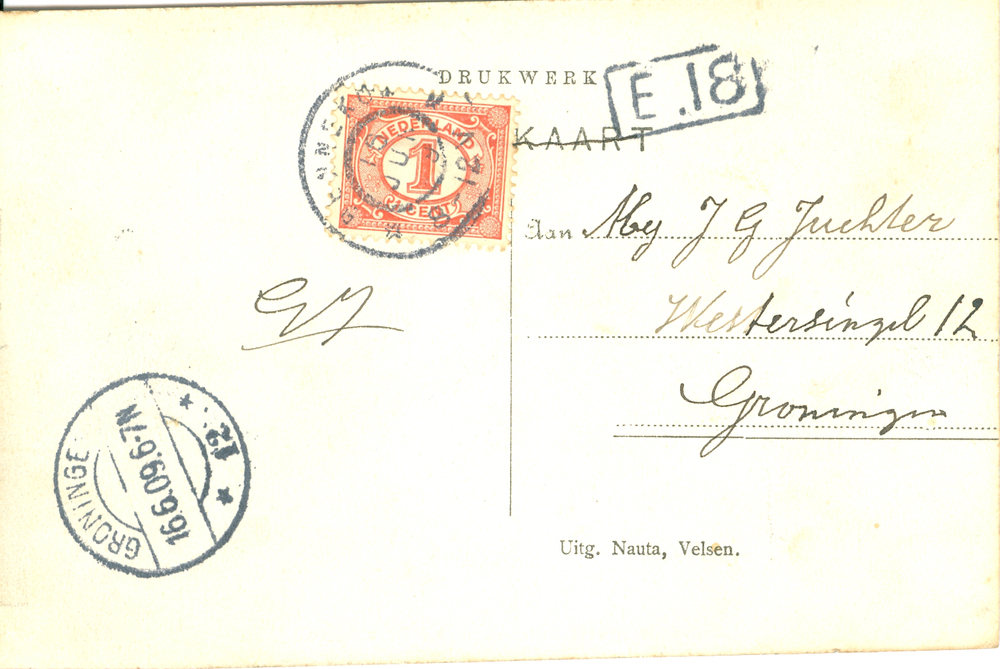 DRUKWERK
E.18
KAART
NEDERLAND
1
CENT
16 JUN
8-12V
Aan Mej J G Juchter
Westersingel 12
Groningen
GJ
GRONINGE
16.6.09.6-7N
12
Uitg. Nauta, Velsen.